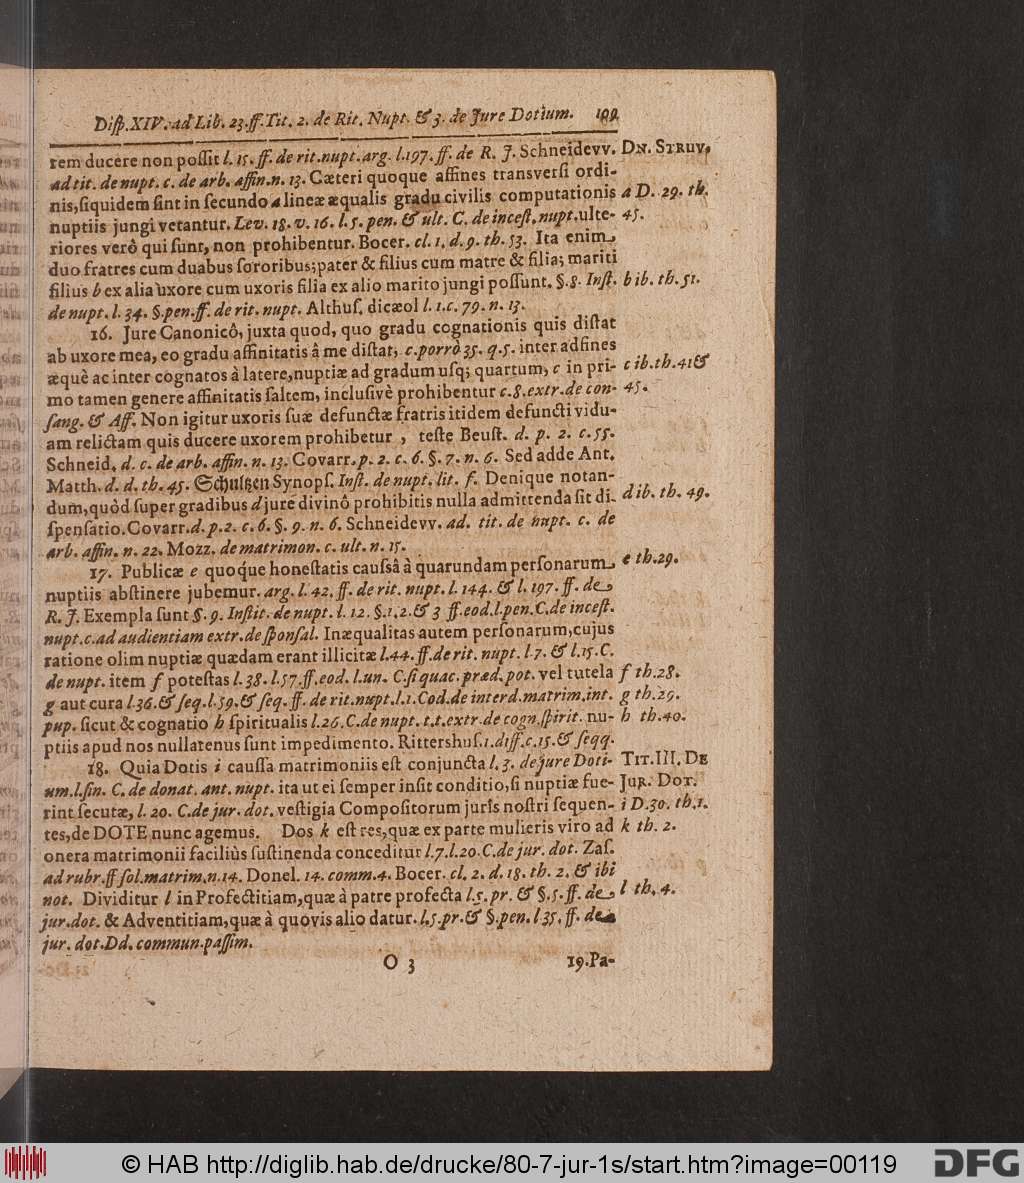 Disp. XIV. ad Lib. 23. ff. Tit. 2. de Rit. Nupt. & 3. de Jure Dotium. 109.
rem ducere non possit l. 15. ff. de rit. nupt. arg. l. 197. ff. de R. J. Schneidevv. DN. STRUV.
ad tit. de nupt. c. de arb. affin. n. 13. Cæteri quoque affines transversi ordi-
nis, siquidem sint in secundo a lineæ æqualis gradu civilis computationis a D. 29. th.
nuptiis jungi vetantur. Lev. 18. v. 16. l. 5. pen. & ult. C. de incest. nupt. ulte- 45.
riores verô qui sunt, non prohibentur. Bocer. cl. 1. d. 9. th. 53. Ita enim
duo fratres cum duabus sororibus; pater & filius cum matre & filia; mariti
filius b ex alia uxore cum uxoris filia ex alio marito jungi possunt. §. 8. Inst. b ib. th. 51.
de nupt. l. 34. §. pen. ff. de rit. nupt. Althus. dicæol l. 1. c. 79. n. 13.
16. Jure Canonicô, juxta quod, quo gradu cognationis quis distat
ab uxore mea, eo gradu affinitatis â me distat, c. porrò 35. q. 5. inter adfines
æquè ac inter cognatos à latere, nuptiæ ad gradum usq; quartum, c in pri- c ib. th. 41 &
mo tamen genere affinitatis saltem, inclusivè prohibentur c. 8. extr. de con- 45.
sang. & Aff. Non igitur uxoris suæ defunctæ fratris itidem defuncti vidu-
am relictam quis ducere uxorem prohibetur , teste Beust. d. p. 2. c. 55.
Schneid. d. c. de arb. affin. n. 13. Covarr. p. 2. c. 6. §. 7. n. 6. Sed adde Ant.
Matth. d. d. th. 45. Schultzen Synops. Inst. de nupt. lit. f. Denique notan-
dum, quòd super gradibus d jure divinô prohibitis nulla admittenda sit di- d ib. th. 49.
spensatio. Covarr. d. p. 2. c. 6. §. 9. n. 6. Schneidevv. ad. tit. de nupt. c. de
arb. affin. n. 22. Mozz. de matrimon. c. ult. n. 15.
17. Publicæ e quoque honestatis caussâ à quarundam personarum e th. 29.
nuptiis abstinere jubemur. arg. l. 42. ff. de rit. nupt. l. 144. & l. 197. ff. de
R. J. Exempla sunt §. 9. Instit. de nupt. l. 12. §. 1. 2. & 3 ff. eod. l. pen. C. de incest.
nupt. c. ad audientiam extr. de sponsal. Inæqualitas autem personarum, cujus
ratione olim nuptiæ quædam erant illicitæ l. 44. ff. de rit. nupt. l. 7. & l. 15. C.
de nupt. item f potestas l. 38. l. 57. ff. eod. l. un. C. si quac. præd. pot. vel tutela f th. 28.
g aut cura l. 36. & seq. l. 59. & seq. ff. de rit. nupt. l. 1. Cod. de interd. matrim. int. g th. 29.
pup. sicut & cognatio h spiritualis l. 26. C. de nupt. t. t. extr. de cogn. spirit. nu- h th. 40.
ptiis apud nos nullatenus sunt impedimento. Rittershus. 1. diff. c. 15. & seqq.
18. Quia Dotis i caussa matrimoniis est conjuncta l. 3. de jure Doti- TIT. III. DE
um. l. fin. C. de donat. ant. nupt. ita ut ei semper insit conditio, si nuptiæ fue- JUR. DOT.
rint secutæ, l. 20. C. de jur. dot. vestigia Compositorum juris nostri sequen- i D. 30. th. 1.
tes, de DOTE nunc agemus. Dos k est res, quæ ex parte mulieris viro ad k th. 2.
onera matrimonii faciliùs sustinenda conceditur l. 7. l. 20. C. de jur. dot. Zas.
ad rubr. ff sol. matrim. n. 14. Donel. 14. comm. 4. Bocer. cl. 2. d. 18. th. 2. & ibi
not. Dividitur l in Profectitiam, quæ à patre profecta l. 5. pr. & §. 5. ff. de l th. 4.
jur. dot. & Adventitiam, quæ à quovis alio datur. l. 5. pr. & §. pen. l 35. ff. de
jur. dot. Dd. commun. passim.
O 3 19. Pa-
© HAB http://diglib.hab.de/drucke/80-7-jur-1s/start.htm?image=00119 DFG